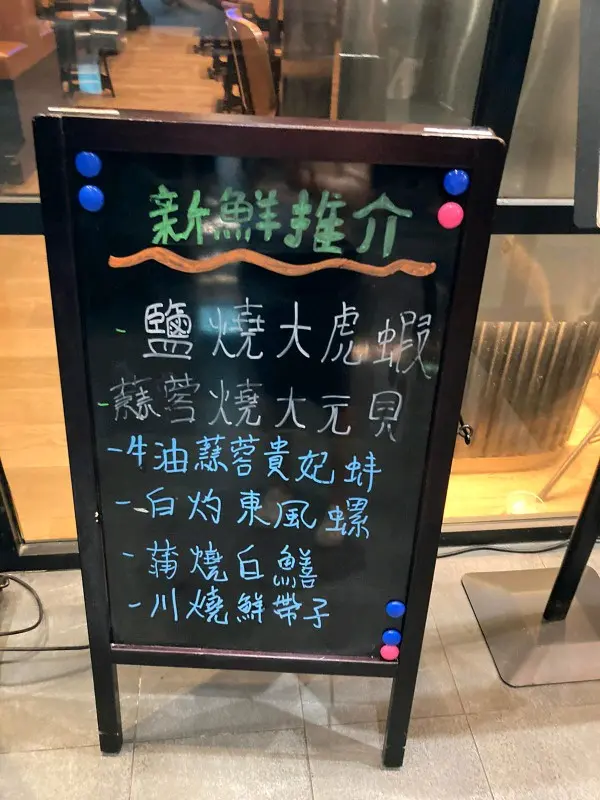 新鮮推介
- 鹽燒大虎蝦
- 蒜蓉燒大元貝
- 牛油蒜蓉貴妃蚌
- 白灼東風螺
- 蒲燒白鱔
- 川燒鮮帶子